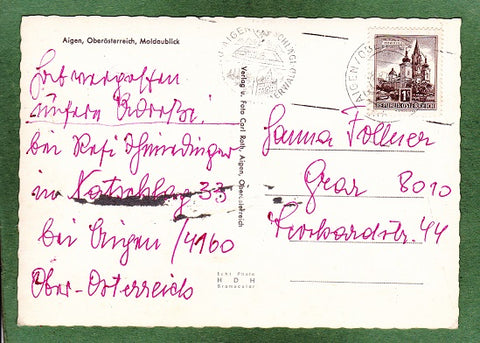 Aigen, Oberösterreich, Moldaublick
fast vergessen
unsere Adresse!
bei Resi
in Natschlag 33
bei Aigen /4160
Ober-Österreich
Verlag u. Foto Carl Roth, Aigen, Oberösterreich
Echt Photo
H D H
Bromcolor
AIGEN
MARIAZELL
REPUBLIK ÖSTERREICH
Hanna Follner
Graz 8010
Leonhardstr. 44